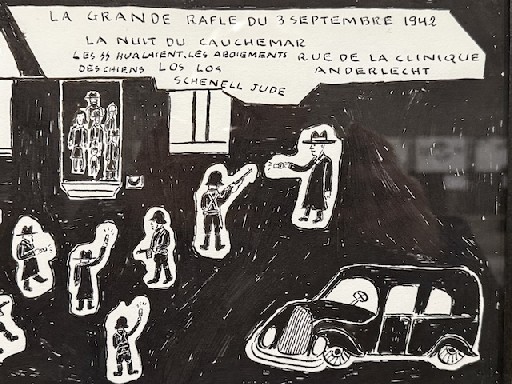 LA GRANDE RAFLE DU 3 SEPTEMBRE 1942
LA NUIT DU CAUCHEMAR
LES SS HURLAIENT, LES ABOIEMENTS RUE DE LA CLINIQUE
DES CHIENS LOS LOS ANDERLECHT
SCHENELL JUDE